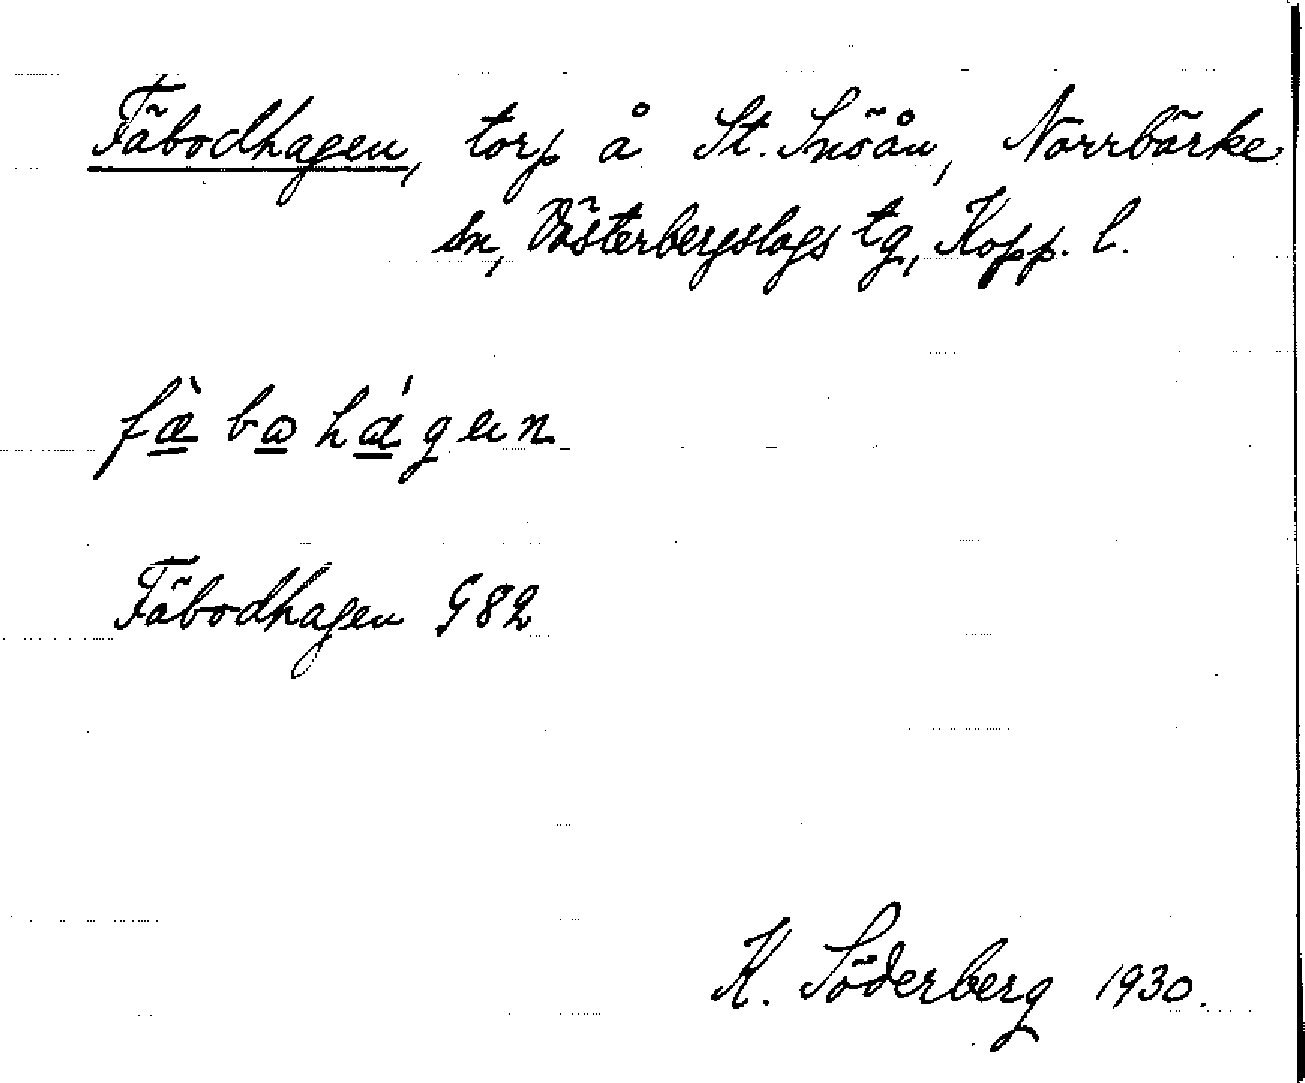 Fäbodhagen, torp å St. Snöån, Norrbärke
sn, Västerbergslags tg, Kopp. l.
fæ̀bɷhágɐn
Fäbodhagen G82
K. Söderberg 1930.